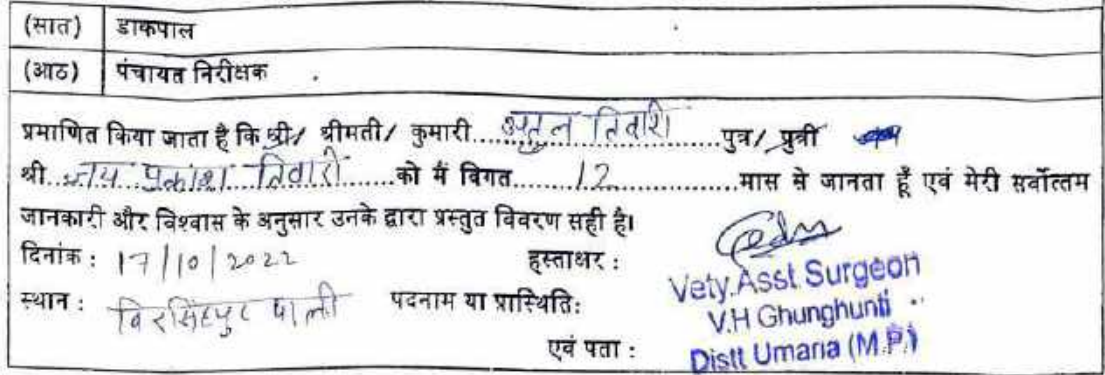 (सात) डाकपाल
(आठ) पंचायत निरीक्षक .
प्रमाणित किया जाता है कि श्री/ श्रीमती/ कुमारी....अतुल तिवारी.......पुत्र/ पुत्री
श्री...जय प्रकाश तिवारी.....को मैं विगत........12..................मास से जानता हूँ एवं मेरी सर्वोत्तम
जानकारी और विश्वास के अनुसार उनके द्वारा प्रस्तुत विवरण सही है।
दिनांक : 17/10/2022 हस्ताक्षर :
Vety.Asst.Surgeon
स्थान : बिरसिंहपुर पाली पदनाम या प्रास्थिति:
V.H Ghunghunti
एवं पता : Distt Umaria (M.P.)